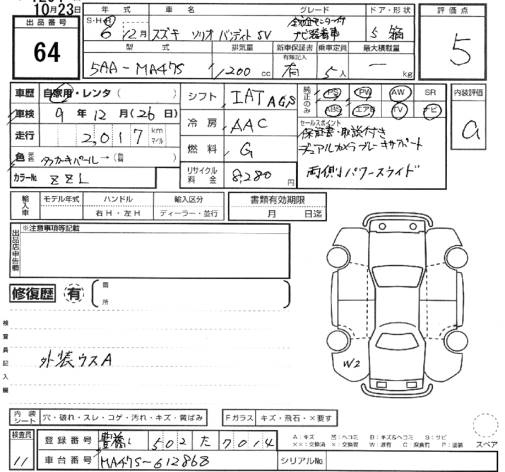 10月23日
出品番号
64
年式 車名 グレード ドア・形状
S・H・R 6年12月 スズキ ソリオ バンディット SV 5 箱
型式 排気量 新車保証書 乗車定員 最大積載量
有無記入
5AA-MA47S 1200 cc 有 5人 kg
評価点
5
車歴 自家用・レンタ
車検 9年12月(26日)
走行 2,017 km マイル
色
カラーNo. ZZL
シフト IAT AGS
冷房 AAC
燃料 G
リサイクル料金 8,280 円
純正のみ
PS PW AW SR
ABS エアB TV ナビ
セールスポイント
保証書・取説付き
デュアルカメラブレーキサポート
両側パワースライド
内装評価
a
輸入車
モデル年式 ハンドル 輸入区分
年 右H・左H ディーラー・並行
書類有効期限
月 日迄
出品店申告欄
※注意事項等記載
修復歴 有
箇所
検査員記入欄
外装ウスA
W2
内装シート 穴・破れ・スレ・コゲ・汚れ・キズ・黄ばみ
Fガラス キズ・飛石・×要す
検査員
11
登録番号 豊橋 502 た 7014
車台番号 MA47S-612868
シリアルNo.
A:キズ
スペア